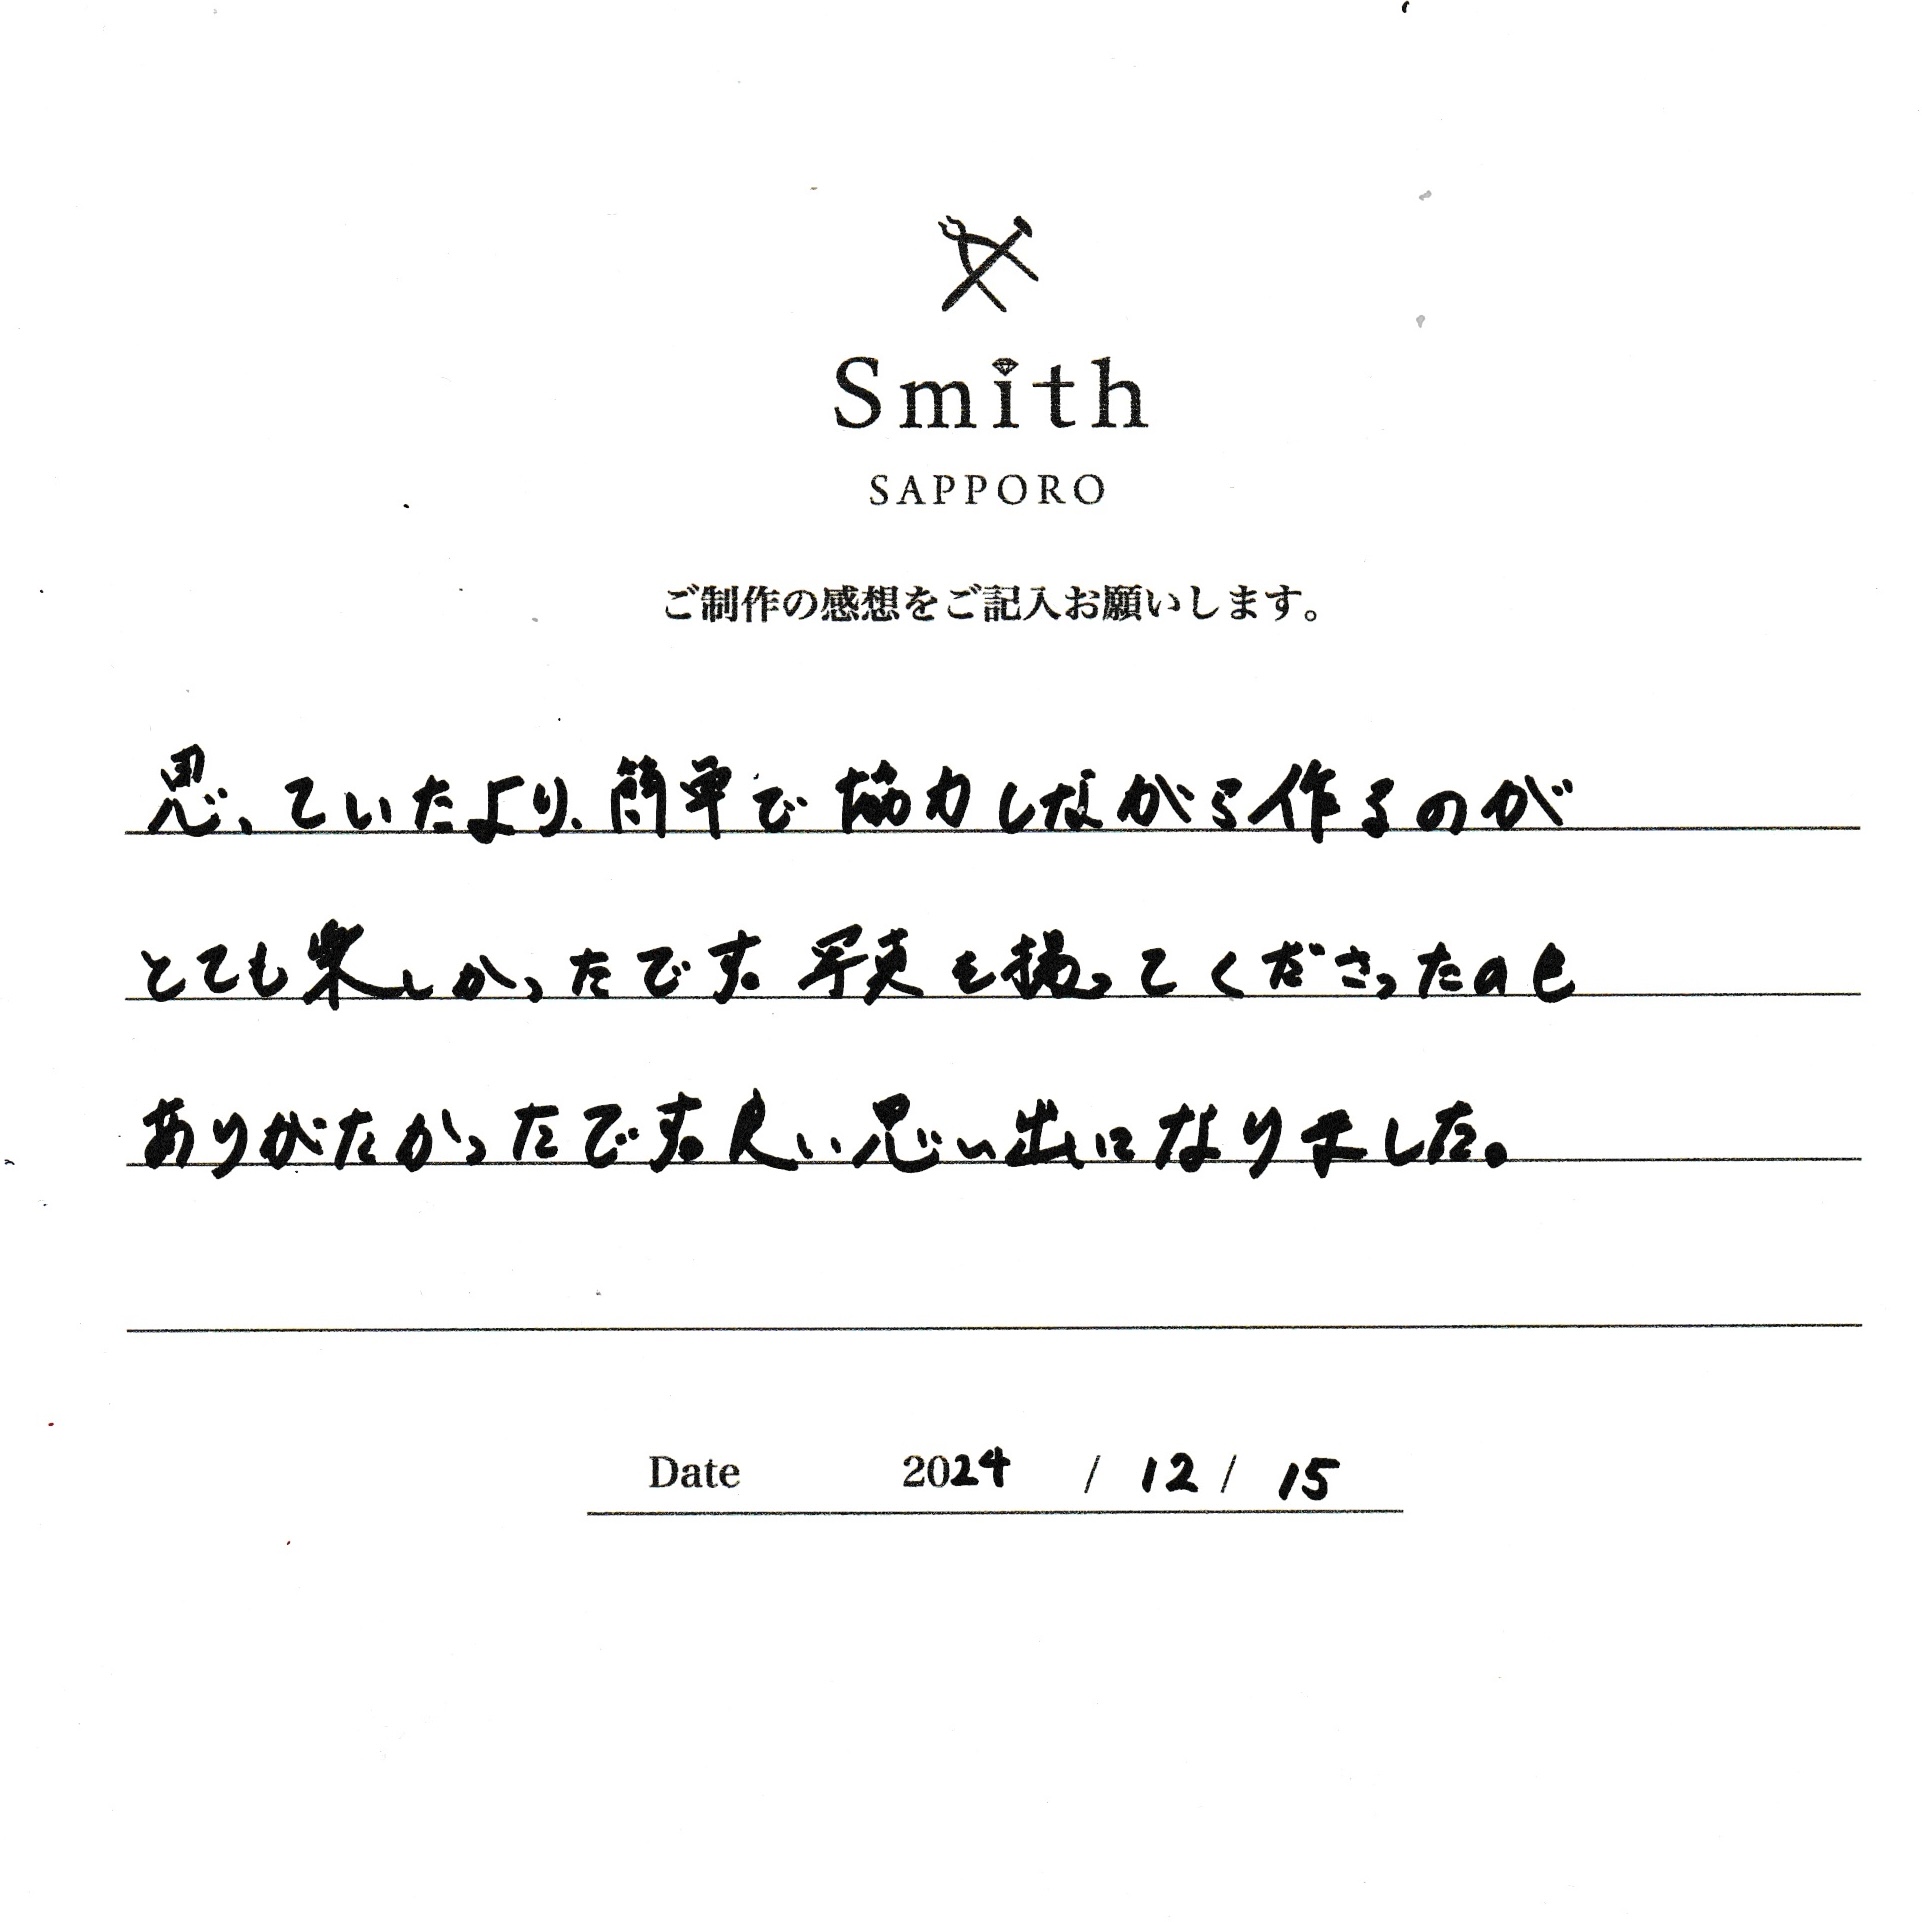 Smith
SAPPORO
ご制作の感想をご記入お願いします。
思っていたより簡単で協力しながら作るのが
とても楽しかったです。写真を撮ってくださったのも
ありがたかったです。良い思い出になりました。
Date 2024 / 12 / 15